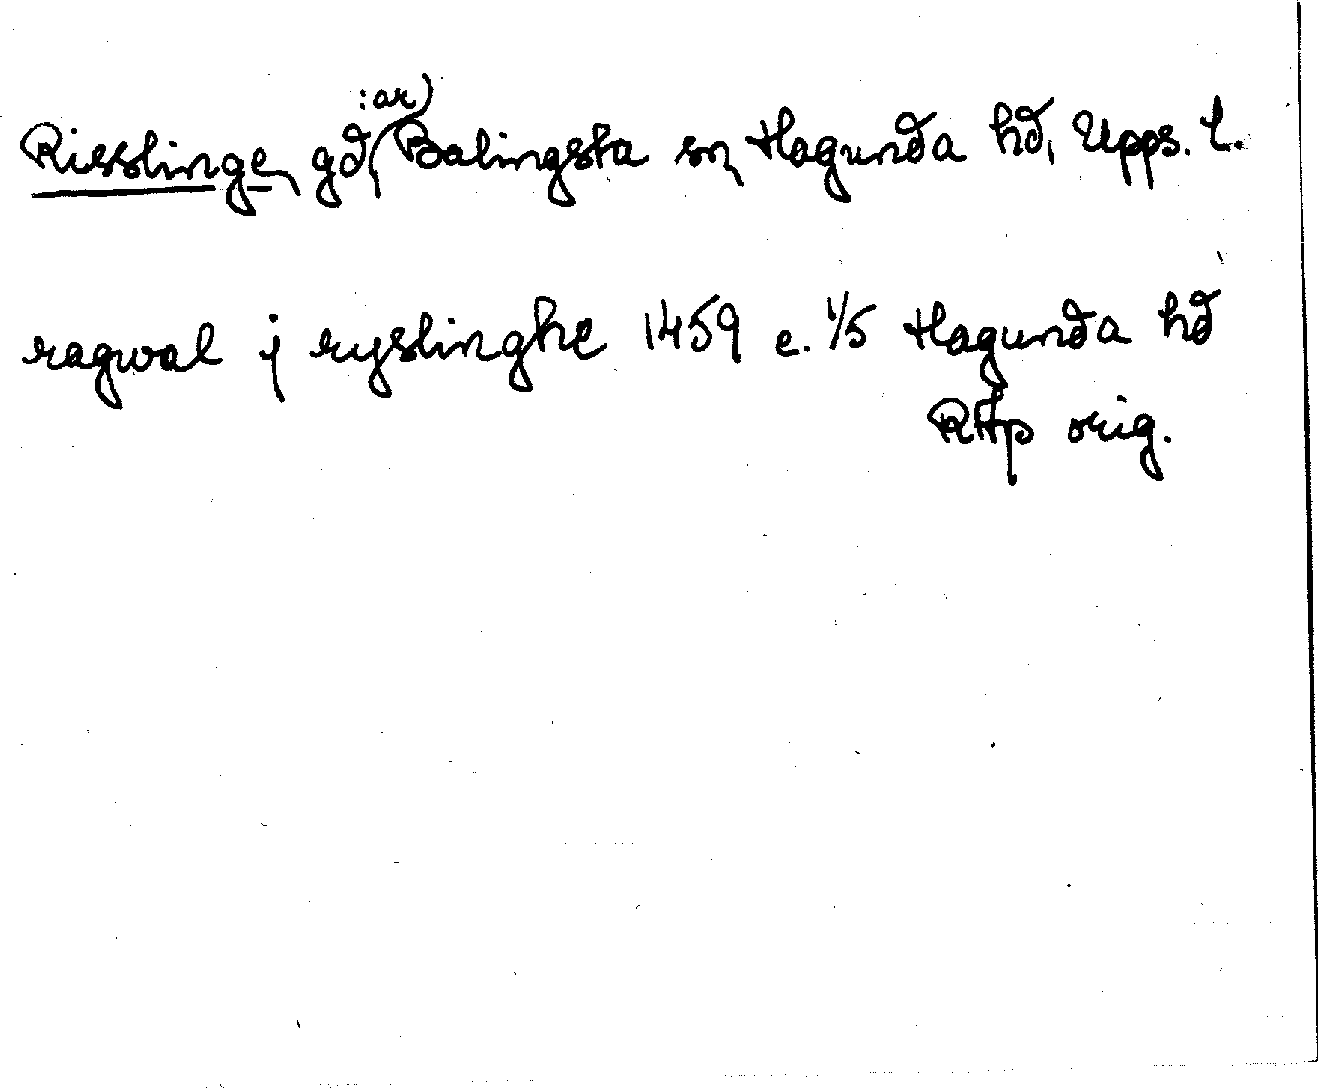 Risslinge, gd, (:ar) Balingsta sn, Hagunda hd, Upps. l.
ragwal j ryslinghe 1459 e. 1/5 Hagunda hd
RAp orig.